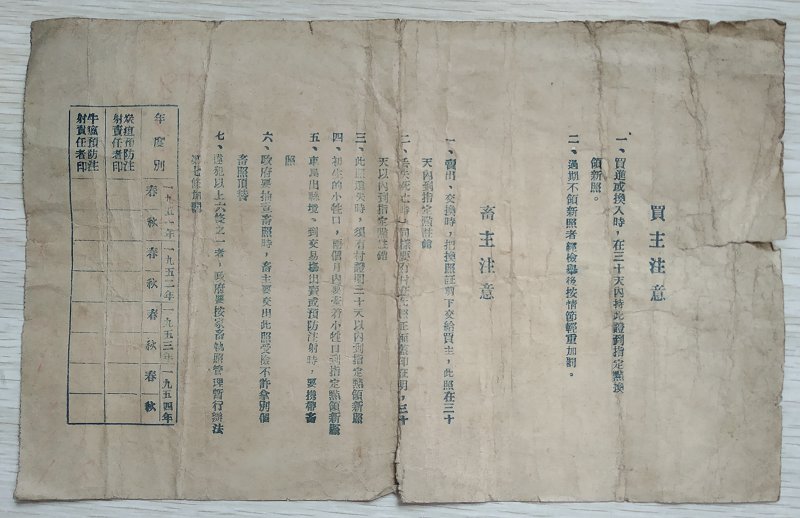 買主注意
一、買進或換入時，在三十天內持此證到指定點換
領新照。
二、過期不領新照者經檢舉後按情節輕重加罰。
畜主注意
一、賣出、交換時，把換照証剪下交給買主，此照在三十
天內到指定點註銷
二、丢失死亡時
三十
天以內到指定點註銷
三、此照遺失時，須有村證明三十天以內到指定點領新照
四、初生的小牲口，兩個月內要牽着小牲口到指定點領新照
五、車馬出縣境、到交易塲出賣或預防注射時，要携帶畜
照
六、政府要抽查畜照時，畜主要交出此照受檢不許拿別個
畜照頂替
七、違犯以上六條之一者，政府要按家畜執照管理暫行辦法
第七條
年度別
一九五一年 一九五二年 一九五三年 一九五四年
春 秋 春 秋 春 秋 春 秋
炭疽預防注
射責任者印
牛瘟預防注
射責任者印